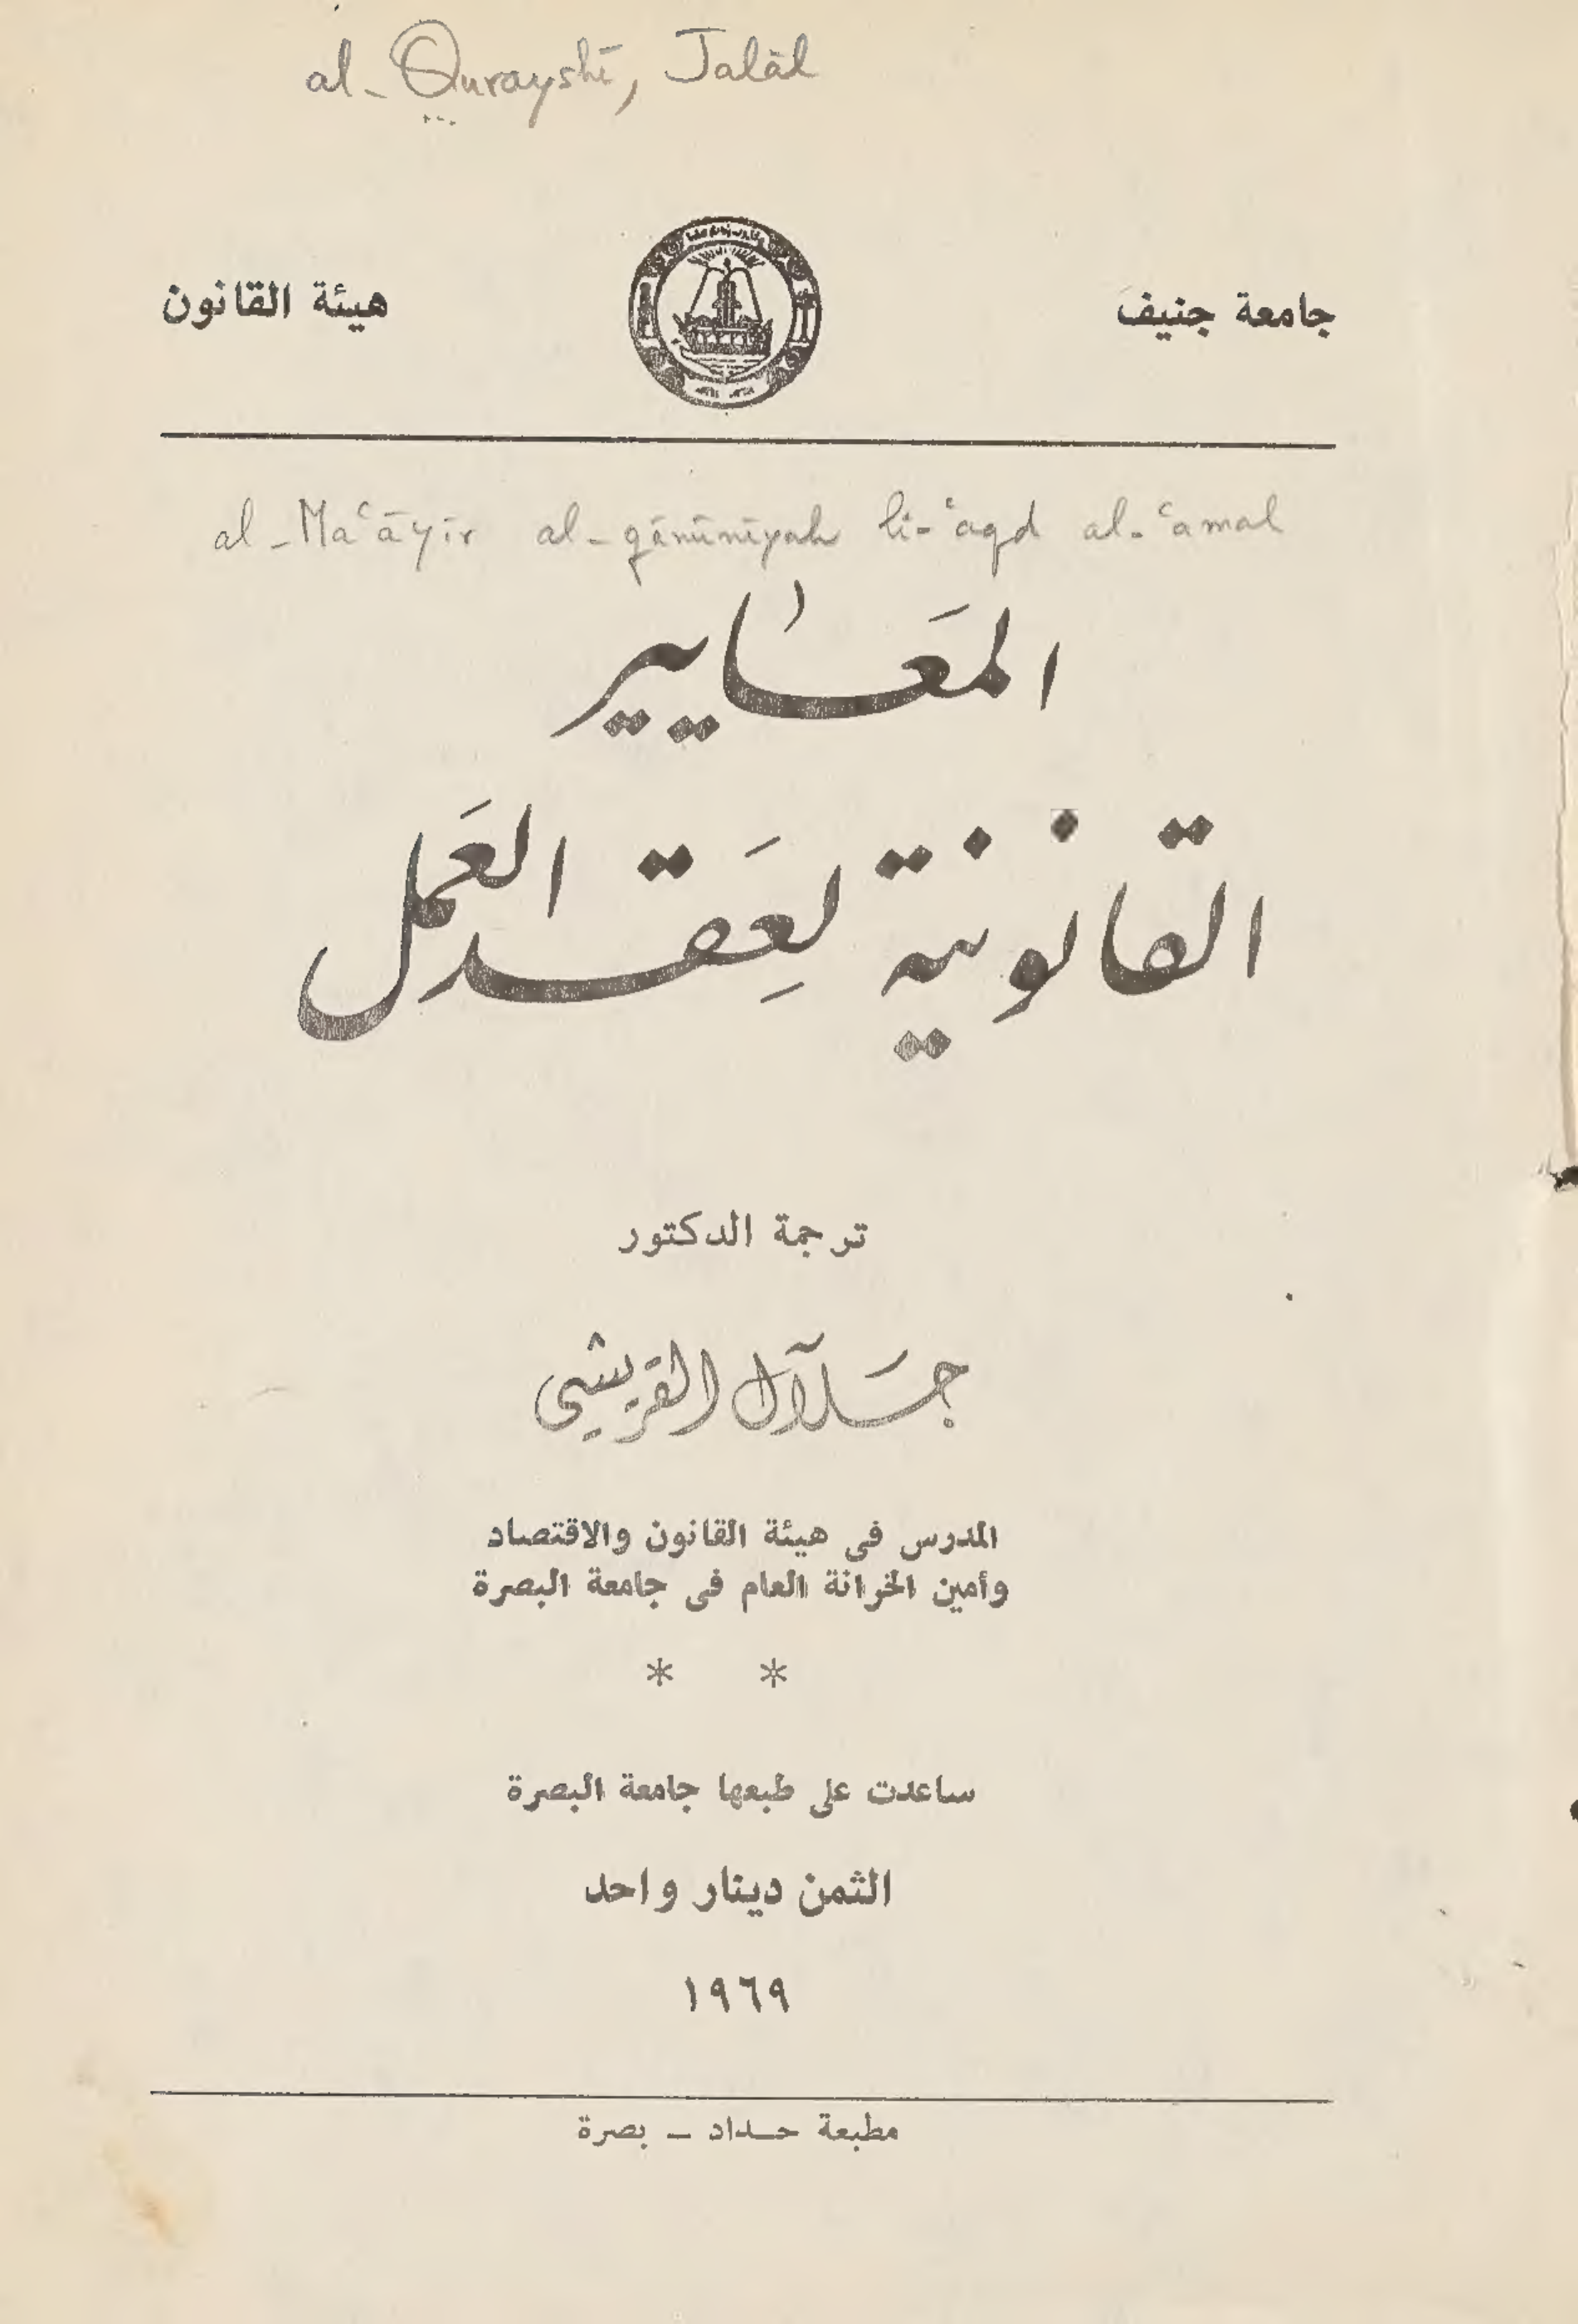 al-Qurayshī, Jalāl
جامعة جنيف
هيئة القانون
al-Maʿāyīr al-qānūnīyah li-ʿaqd al-ʿamal
المعَايير
القانونية لعِقَد العَمل
ترجمة الدكتور
جَلآل القريشي
المدرس في هيئة القانون والاقتصاد
وأمين الخزانة العام في جامعة البصرة
* *
ساعدت على طبعها جامعة البصرة
الثمن دينار واحد
١٩٦٩
مطبعة حـداد ـ بصرة